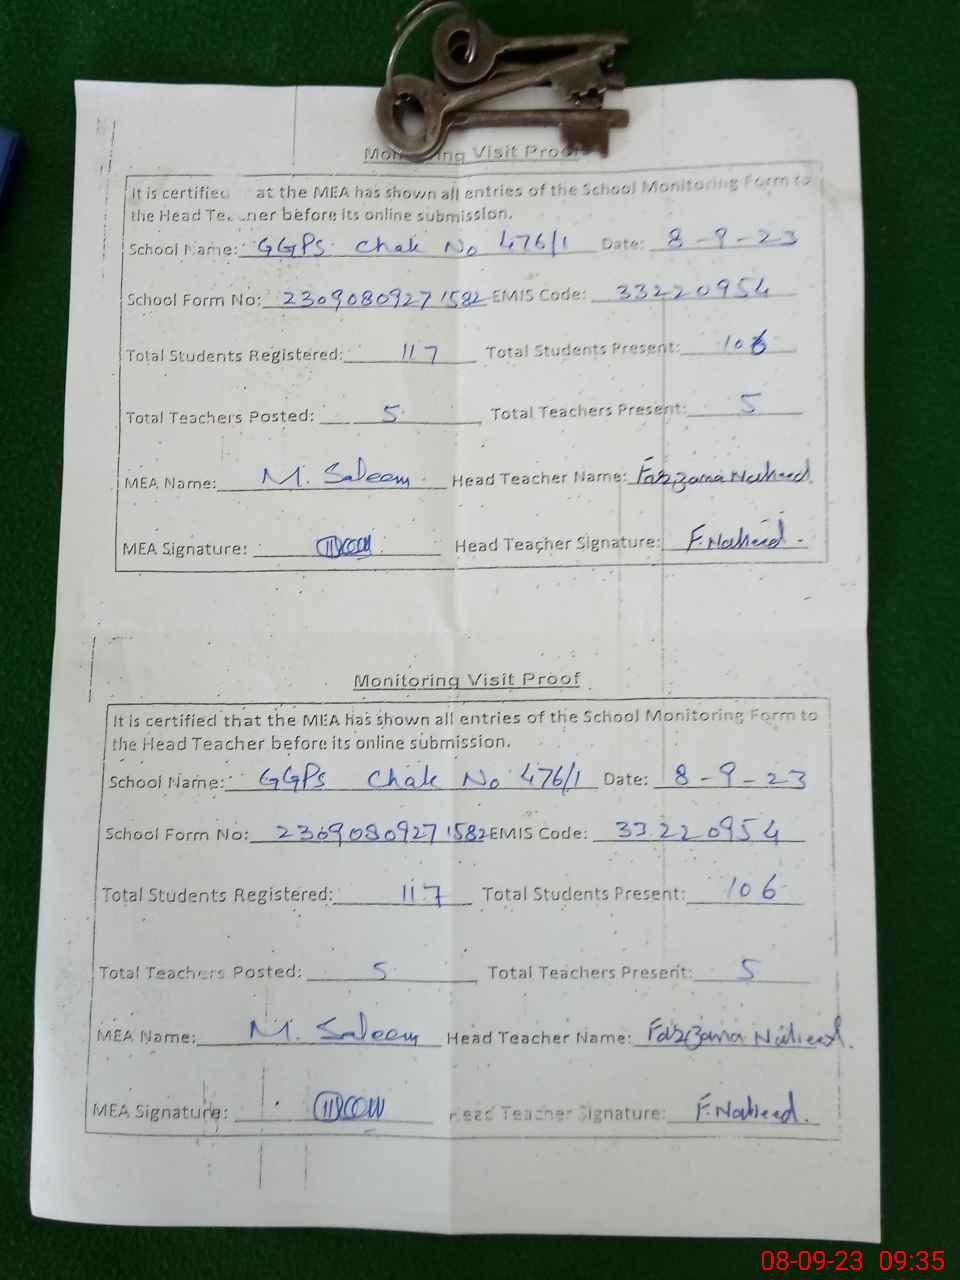 Monitoring Visit Proof
It is certified at the MEA has shown all entries of the School Monitoring Form to
the Head Teacher before its online submission.
School Name: GGPS Chak No 476/1 Date: 8-9-23
School Form No: 23090809271582 EMIS Code: 33220954
Total Students Registered: 117 Total Students Present: 106
Total Teachers Posted: 5 Total Teachers Present: 5
MEA Name: M. Saleem Head Teacher Name: Farzana Naheed.
MEA Signature: Head Teacher Signature: F.Naheed.
Monitoring Visit Proof
It is certified that the MEA has shown all entries of the School Monitoring Form to
the Head Teacher before its online submission.
School Name: GGPS Chak No 476/1 Date: 8-9-23
School Form No: 23090809271582 EMIS Code: 33220954
Total Students Registered: 117 Total Students Present: 106
Total Teachers Posted: 5 Total Teachers Present: 5
MEA Name: M. Saleem Head Teacher Name: Farzana Naheed.
MEA Signature: Head Teacher Signature: F.Naheed.
08-09-23 09:35